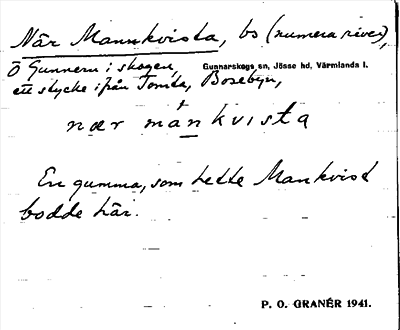 När Mannkvista, bs (numera river),
Ö Gunnern i skogen, Gunnarskogs sn, Jösse hd, Värmlands l.
ett stycke ifrån Tomta, Bosebyn,
nær mánkvista
En gumma, som hette Mankvist
bodde här.
P. O. GRANÉR 1941.